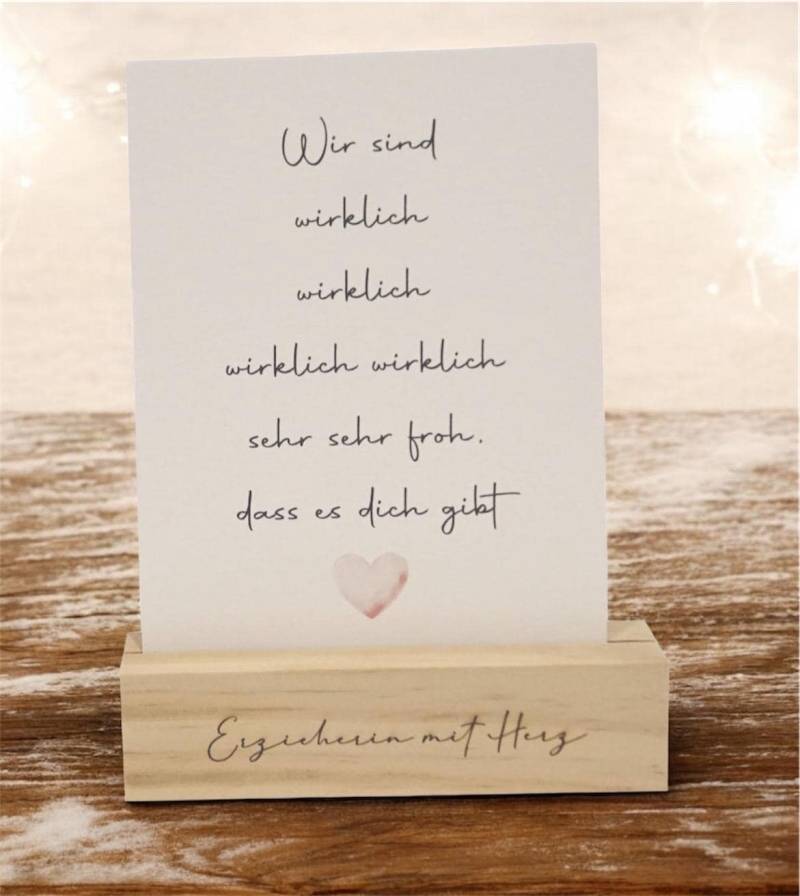 Wir sind
wirklich
wirklich
wirklich wirklich
sehr sehr froh.
dass es dich gibt
Erzieherin mit Herz